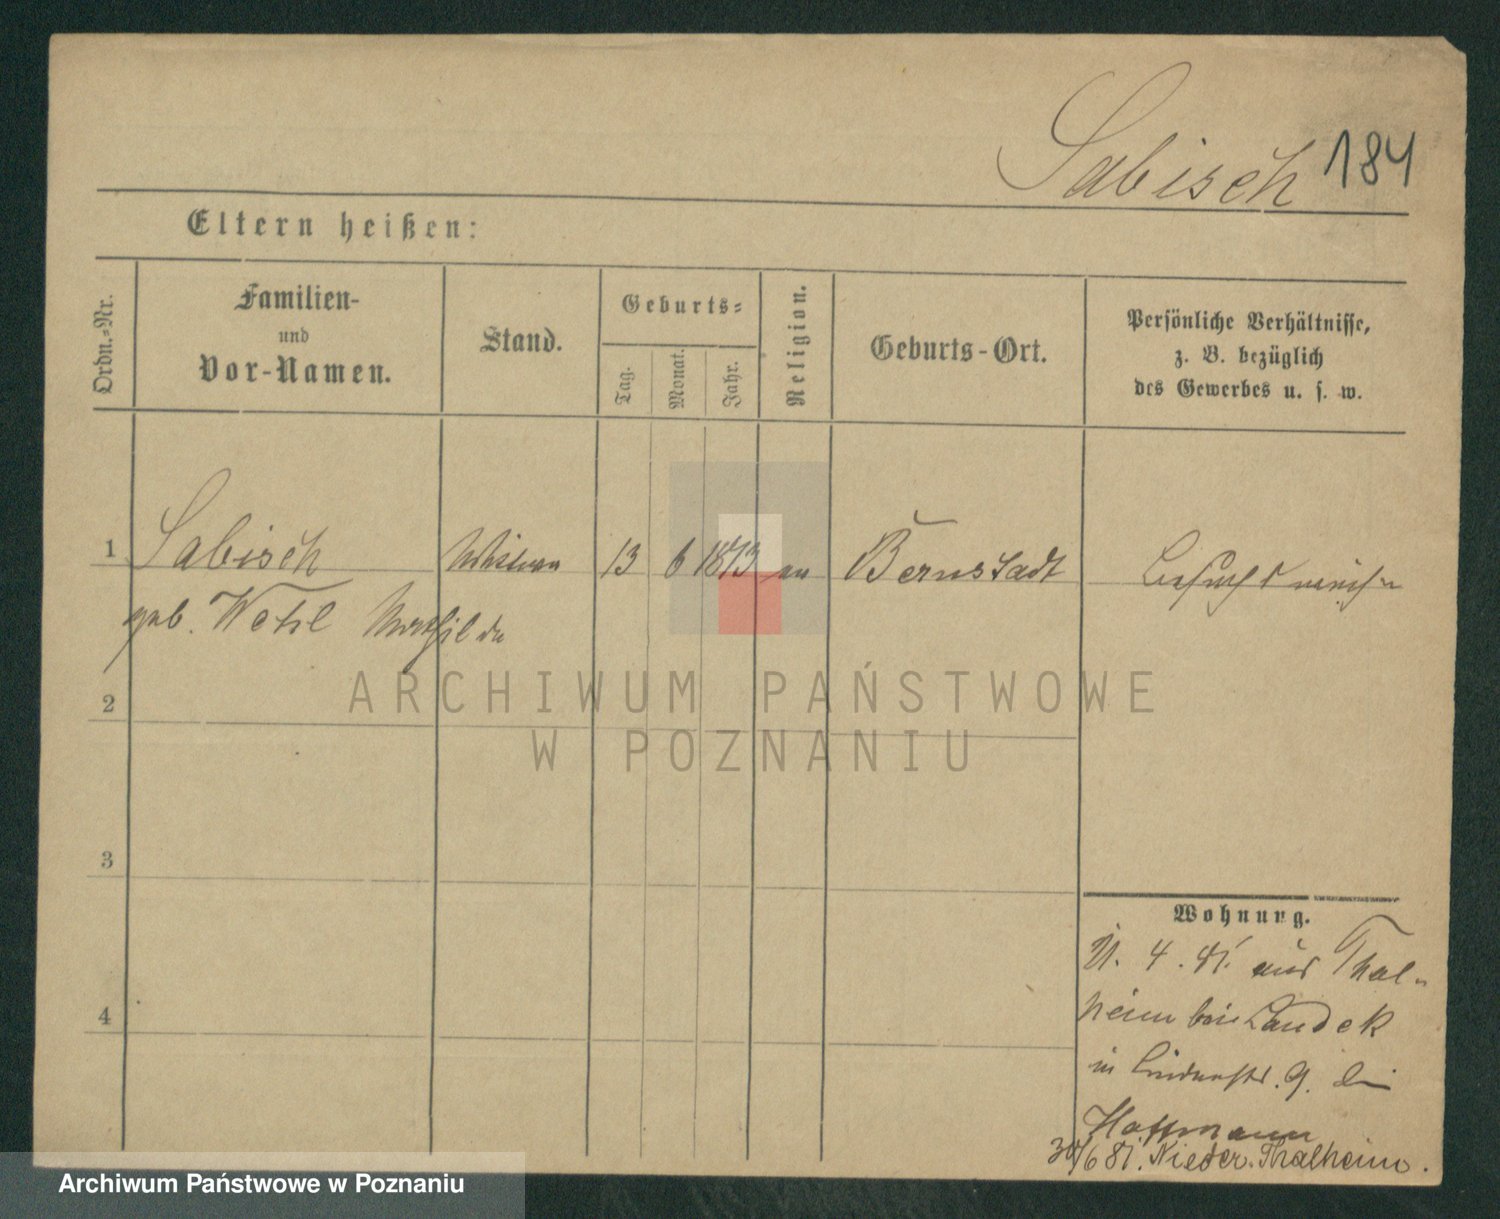 Sabisch 184
Eltern heißen:
Ordn.=Nr.
Familien-
und
Vor-Namen.
Stand.
Geburts=
Tag.
Monat.
Jahr.
Religion.
Geburts-Ort.
Persönliche Verhältnisse,
z. B. bezüglich
des Gewerbes u. s. w.
1 Sabisch 13 6 1873 Bernstadt
geb.
2
3
4
ARCHIWUM PAŃSTWOWE
W POZNANIU
Wohnung.
4. aus Thal-
heim bei Landek
in Lindenstr. 9. bei
Hoffmann
30/6 81. Nieder. Thalheim.
Archiwum Państwowe w Poznaniu